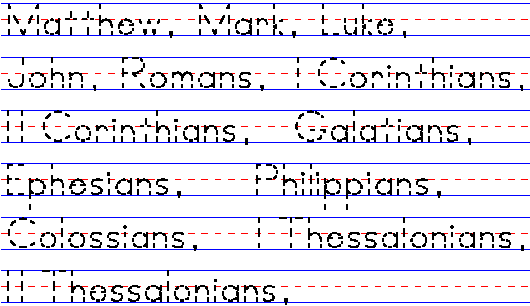 Matthew, Mark, Luke,
John, Romans, I Corinthians,
II Corinthians, Galatians,
Ephesians, Philippians,
Colossians, I Thessalonians,
II Thessalonians,